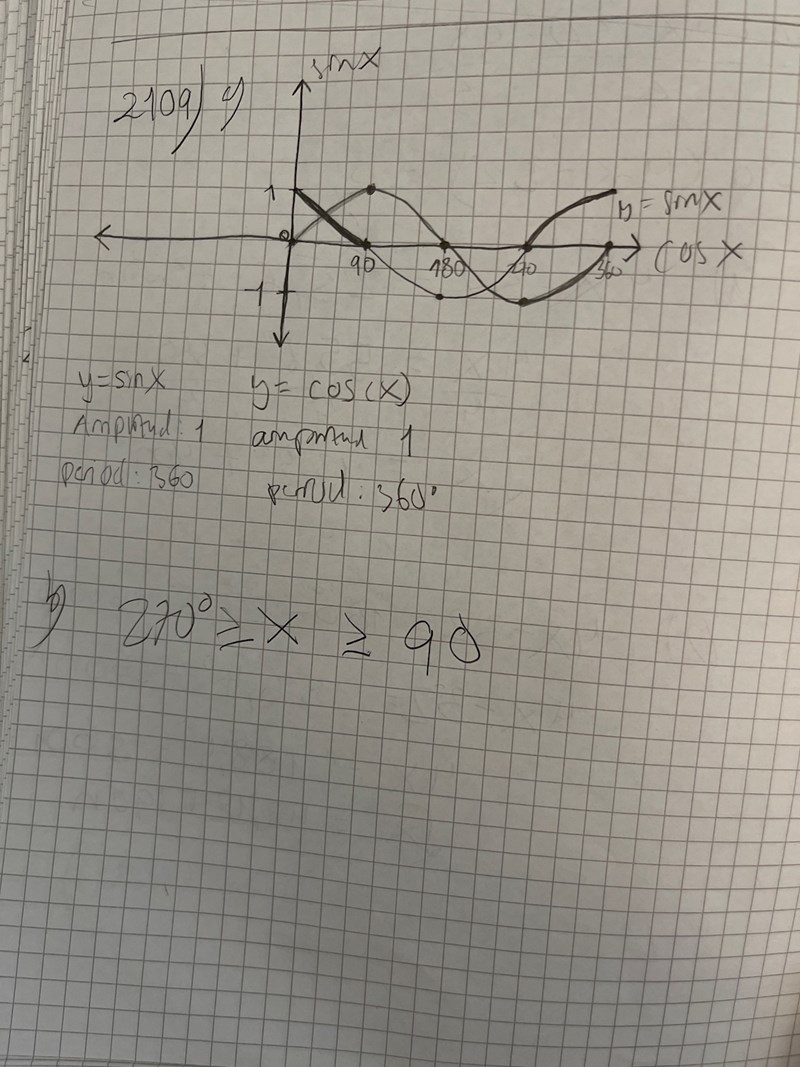 sinx
2109) a)
1
y = sinx
0
90 180 270 360 cos x
-1
y=sinx y= cos(x)
Amplitud: 1 amplitud 1
period: 360 period: 360°
b) 270° ≥ x ≥ 90